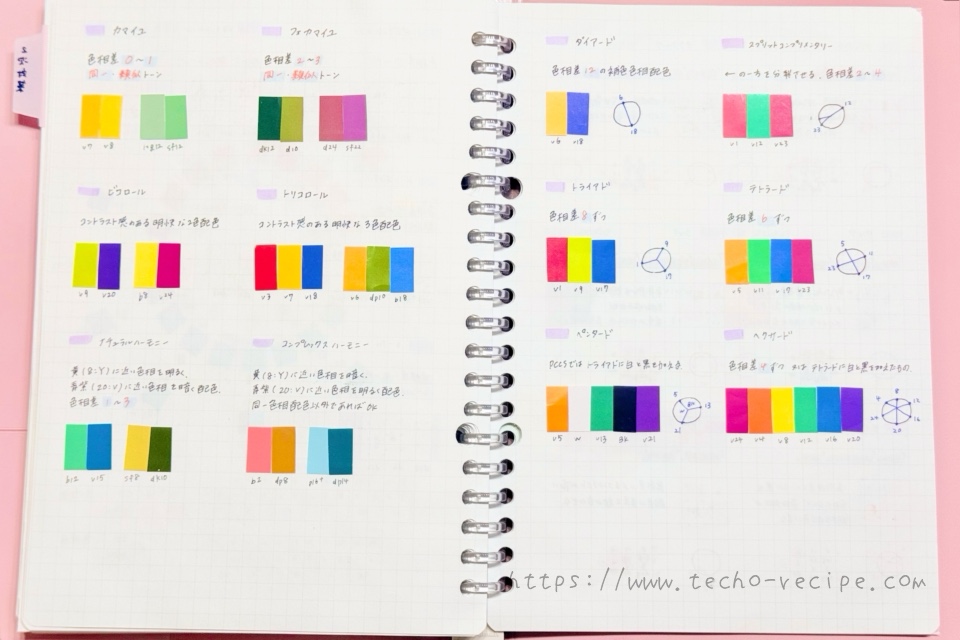 カマイユ
色相差 0〜1
同一・類似トーン
v7 v8
ltg12 sf12
フォカマイユ
色相差 2〜3
同一・類似トーン
dk12 d10
d24 sf22
ビコロール
コントラスト感のある明快な2色配色
v9 v20
p8 v24
トリコロール
コントラスト感のある明快な3色配色
v3 v7 v18
v6 dp10 b18
ナチュラルハーモニー
黄(8:Y)に近い色相を明るく、
青紫(20:V)に近い色相を暗く配色。
色相差 1〜3
b12 v15
sf8 dk10
コンプレックスハーモニー
黄(8:Y)に近い色相を暗く、
青紫(20:V)に近い色相を明るく配色。
同一色相配色以外であればOK
b2 dp8
dp14
ダイアード
色相差 12 の補色色相配色
v6 v18
6
18
スプリットコンプリメンタリー
←の一方を分裂させる。色相差 2〜4
v1 v12 v23
12
1
23
トライアド
色相差 8 ずつ
v1 v9 v17
9
1
17
テトラード
色相差 6 ずつ
v5 v11 v17 v23
5
11
23
17
ペンタード
PCCSではトライアドに白と黒を加える
v5 W v13 Bk v21
5
13
21
ヘクサード
色相差 4 ずつ or テトラードに白と黒を加えたもの。
v24 v4 v8 v12 v16 v20
8
4
12
24
16
20
https://www.techo-recipe.com